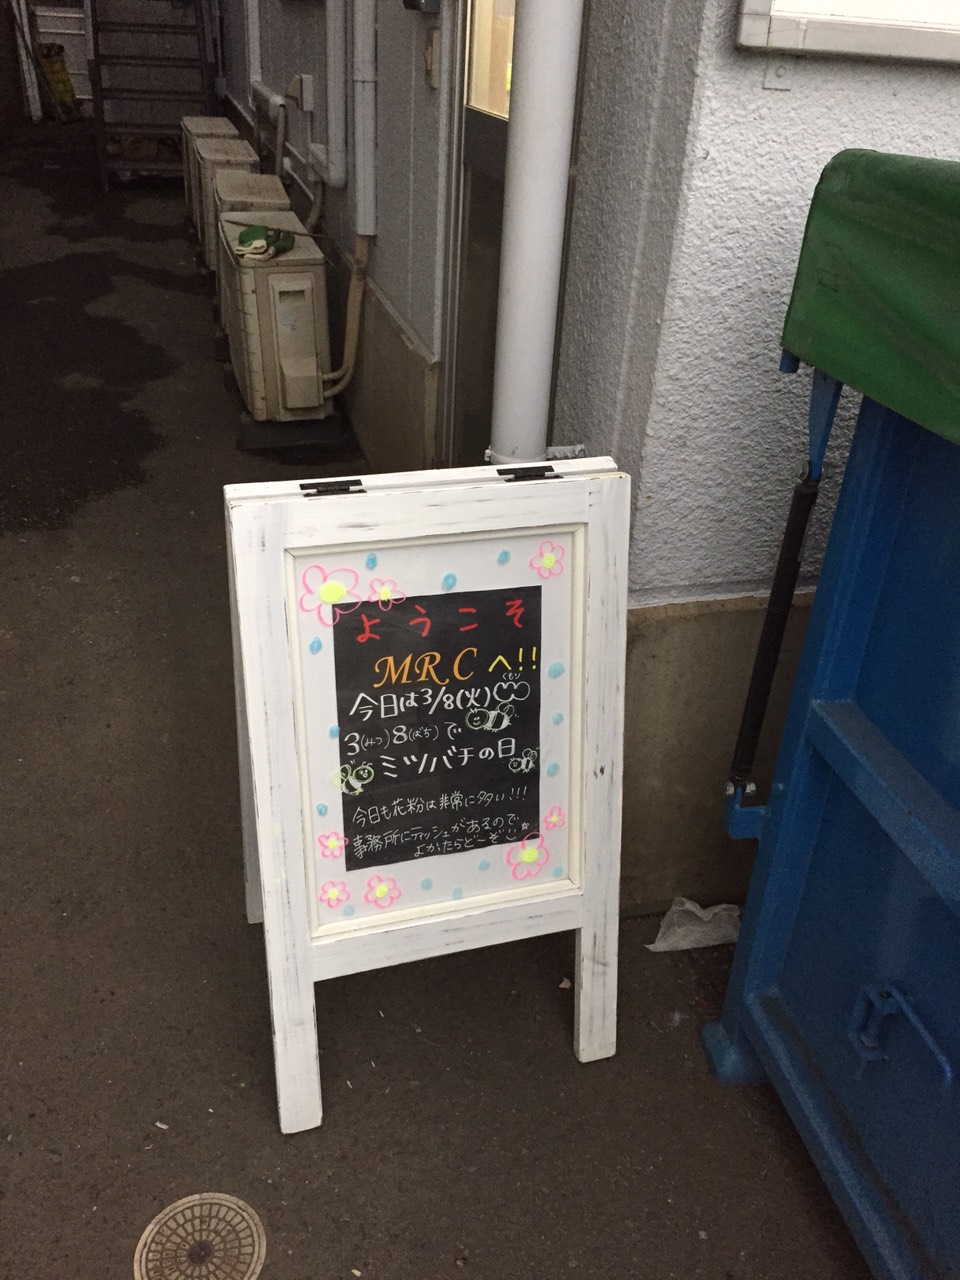 ようこそ
MRCへ!!
くもり
今日は3/8(火)
3(みつ)8(ばち)で
ミツバチの日
今日も花粉は非常に多い!!!
事務所にティッシュがあるので
よかったらどーぞ